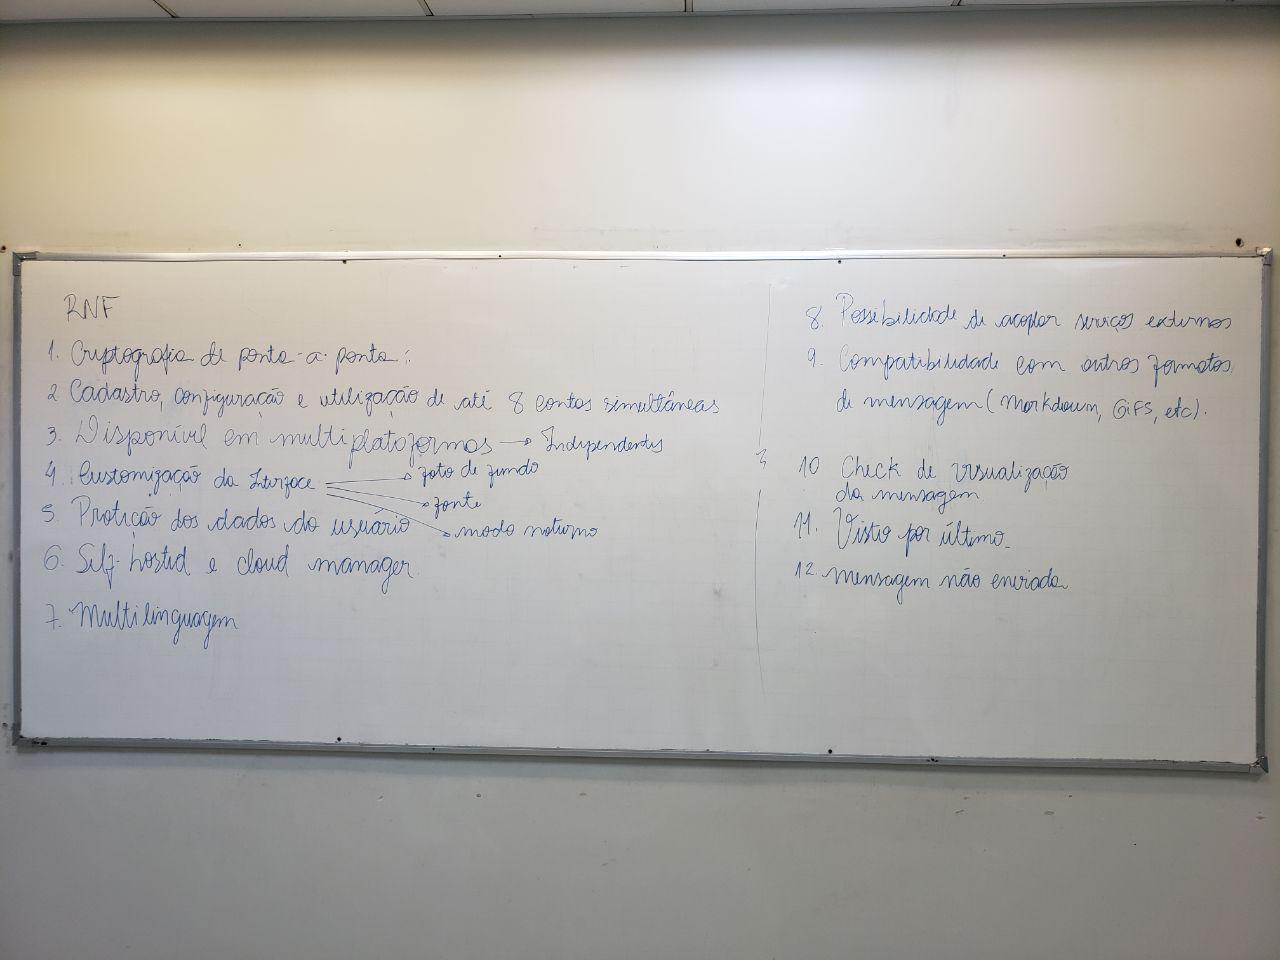 RNF
1. Criptografia de ponta-a-ponta.
2 Cadastro, configuração e utilização de até 8 contas simultâneas
3. Disponível em multiplataformas → Independentes
4 Customização da Interface → foto de fundo
→ fonte
→ modo noturno
5. Proteção dos dados do usuário
6. Self-hosted e cloud manager.
7. Multilinguagem
8. Possibilidade de acoplar serviços externos
9. Compatibilidade com outros formatos
de mensagem (Markdown, GIFS, etc).
10 Check de visualização
da mensagem
11. Visto por último.
12. Mensagem não enviada